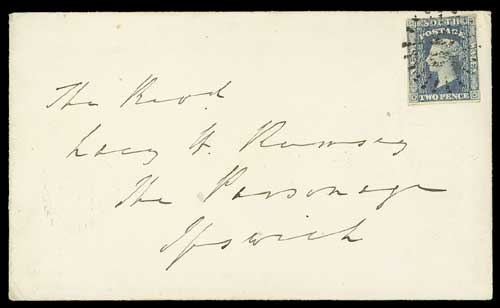 SOUTH
POSTAGE
WALES
TWO PENCE
The Revd.
Lacy H. Rumsey
The Parsonage
Ipswich